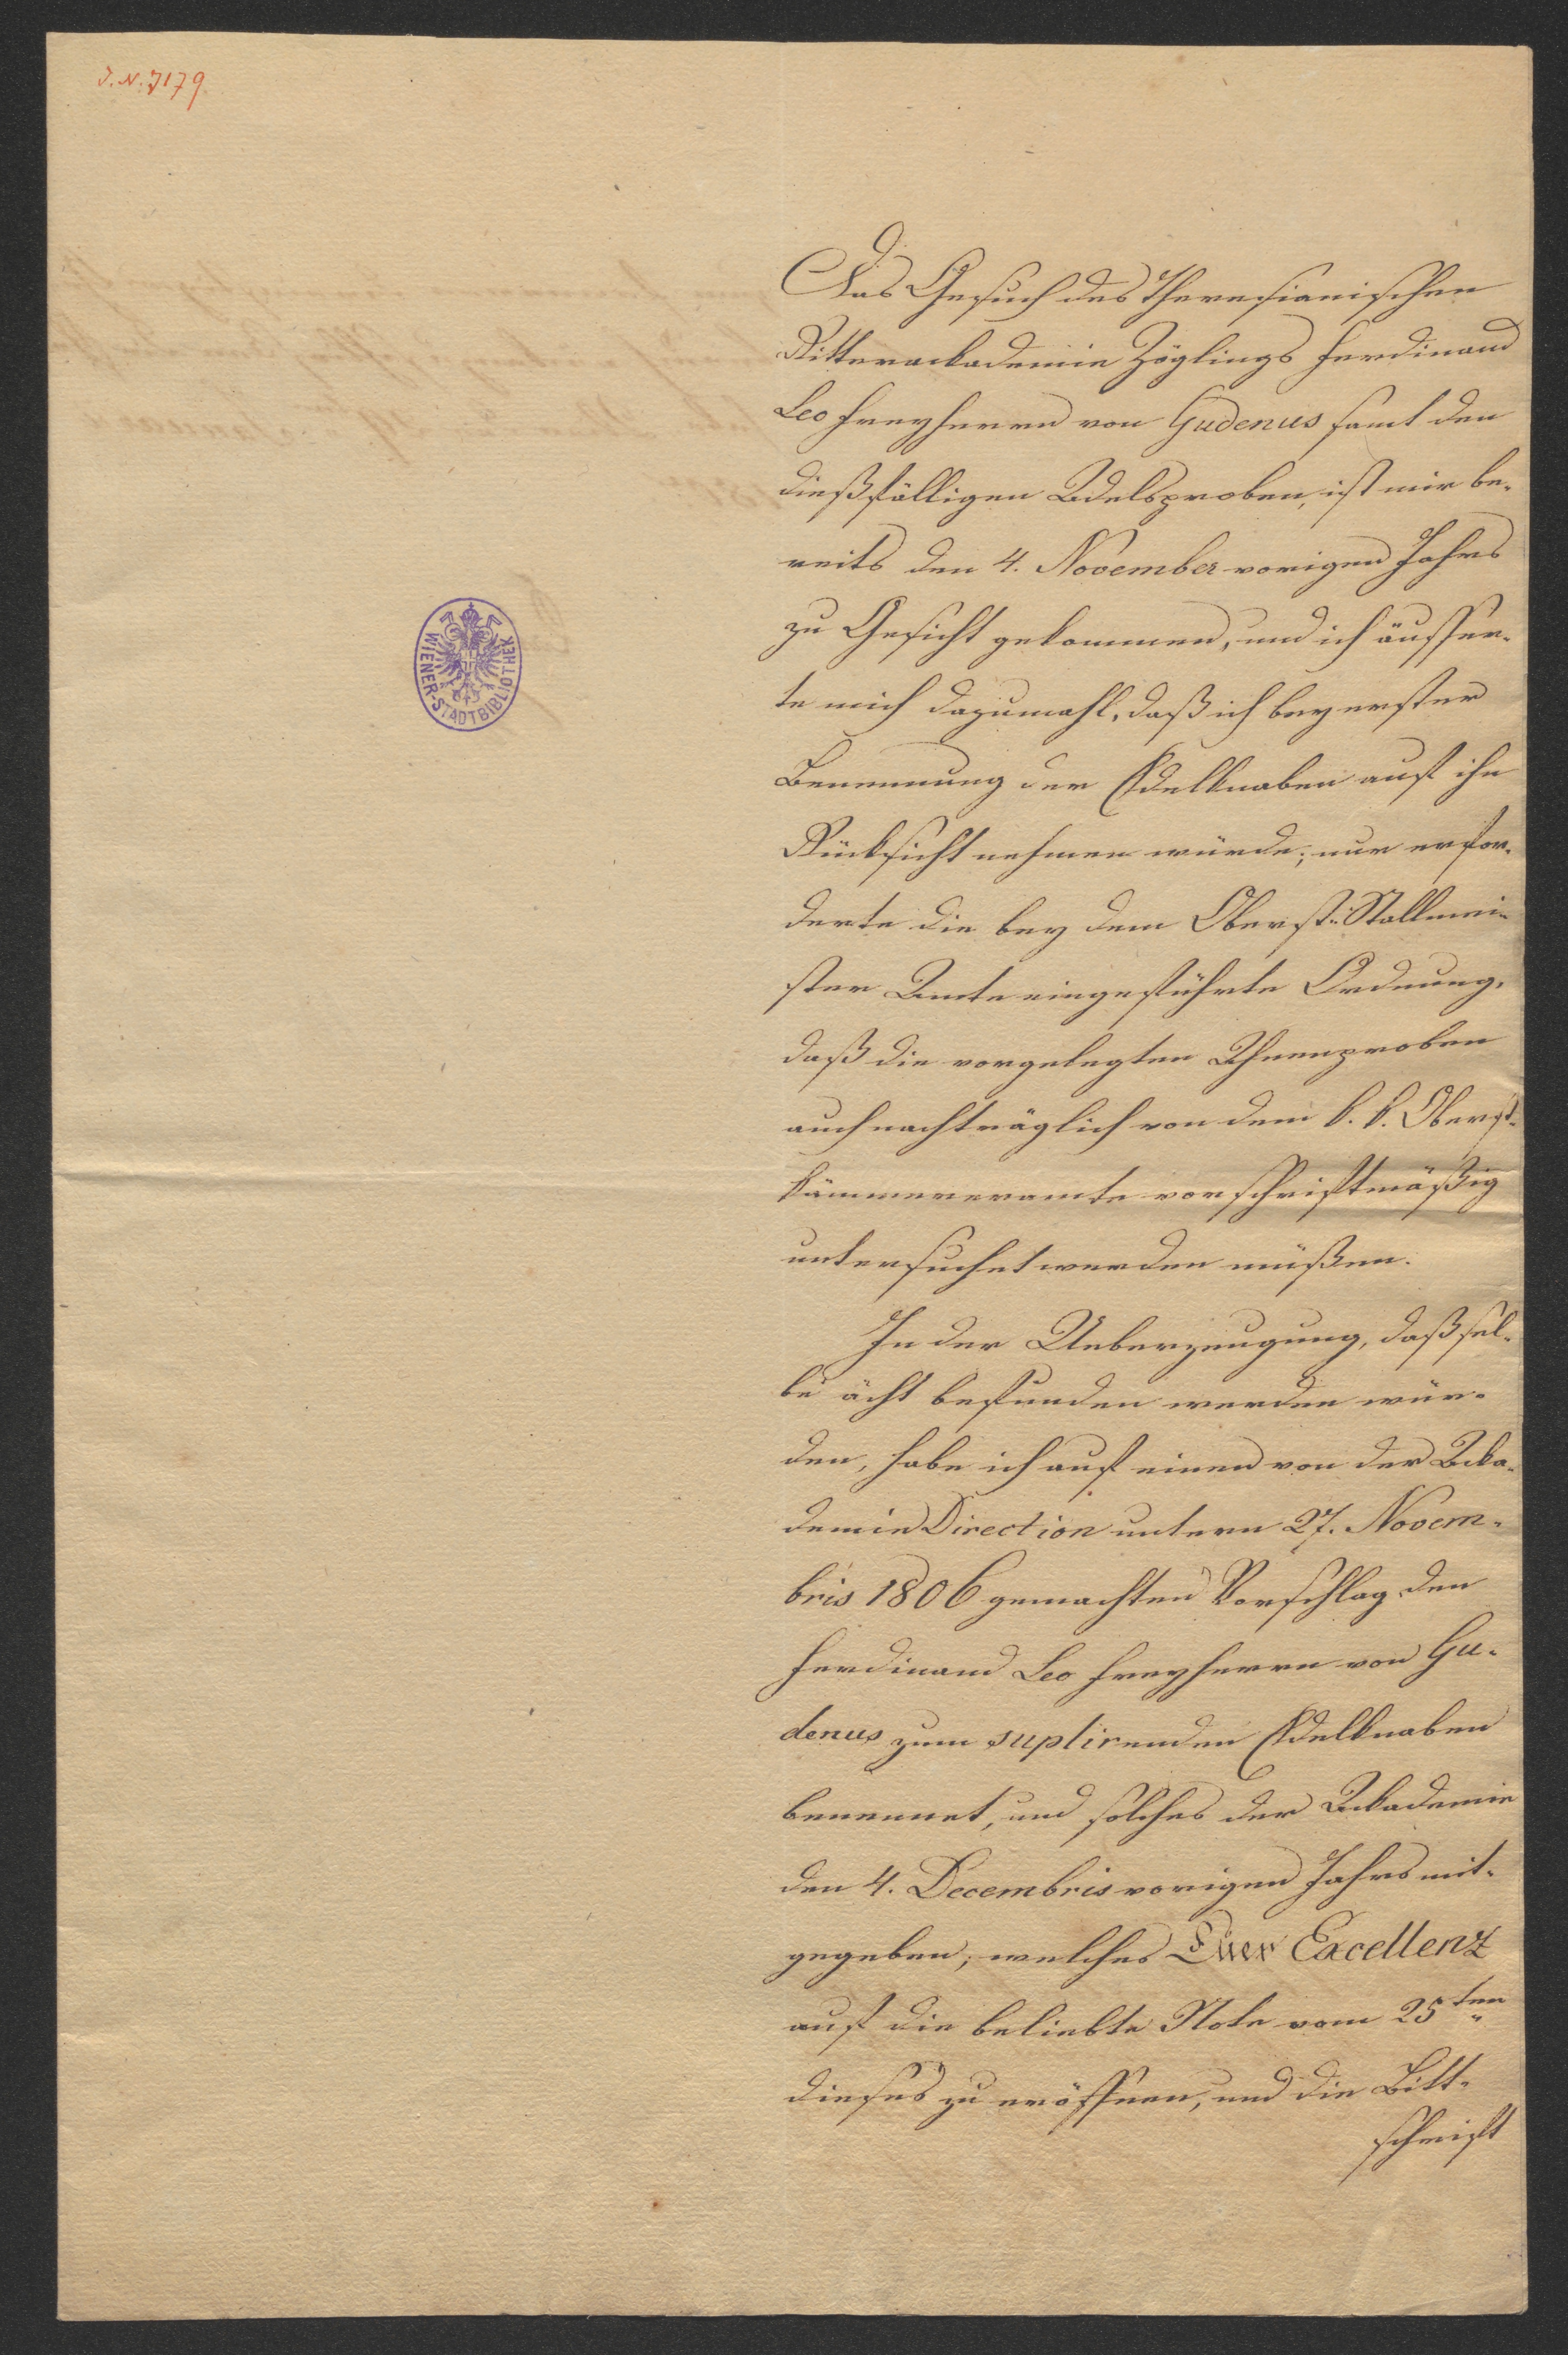 J. N. 7179
WIENER-STADTBIBLIOTHEK
Das Gesuch des Theresianischen
Ritterackademie Zöglings Ferdinand
Leo Freyherrn von Gudenus samt den
dießfälligen Adelsproben, ist mir be-
reits den 4. November vorigen Jahrs
zu Gesicht gekommen, und ich äusser-
te mich dazumahl, daß ich bey erster
Benennung der Edelknaben auf ihn
Rücksicht nehmen würde; nur erfor-
derte die bey dem Oberst-Stallmei-
ster Amte eingeführte Ordnung,
daß die vorgelegten Ahnenproben
auch nachträglich von dem k. k. Oberst-
kämmereramte vorschriftmäßig
untersuchet werden müßen.
In der Ueberzeugung, daß sel-
be ächt befunden werden wür-
den, habe ich auf einen von der Acka-
demie Direction unterm 27. Novem-
bris 1806 gemachten Vorschlag den
Ferdinand Leo Freyherrn von Gu-
denus zum suplirenden Edelknaben
benennet, und solches der Ackademie
den 4. Decembris vorigen Jahrs mit-
gegeben; welches Euer Excellenz
auf die beliebte Note vom 25ten
dieses zu eröffnen, und die Bitt-
schrift